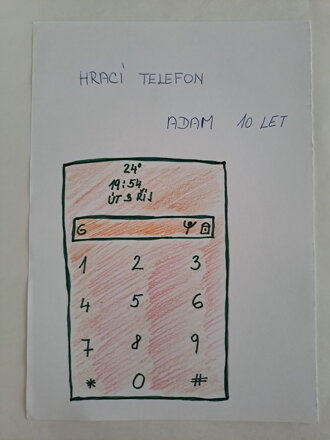 HRACÍ TELEFON
ADAM 10 LET
24°
19:54
ÚT 3 ŘÍJ
G
1 2 3
4 5 6
7 8 9
* 0 #